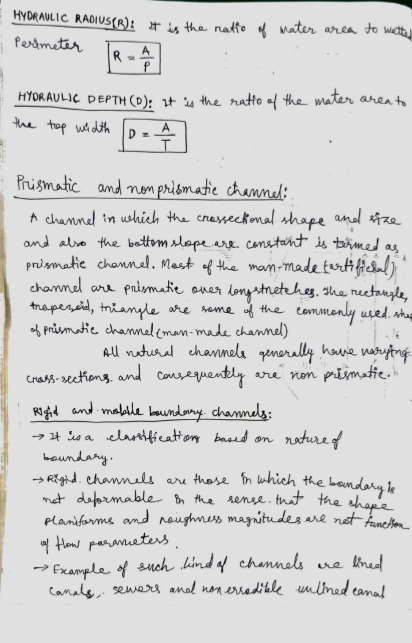 HYDRAULIC RADIUS(R): It is the ratio of water area to wetted
Perimeter R = A/P
HYDRAULIC DEPTH (D): It is the ratio of the water area to
the top width D = A/T
Prismatic and nonprismatic channel:
A channel in which the crossectional shape and size
and also the bottom slope are constant is termed as
prismatic channel. Most of the man-made (artificial)
channel are prismatic over long stretches. The rectangle,
trapezoid, triangle are some of the commonly used
of prismatic channel (man-made channel)
All natural channels generally have varying
cross-sections and consequently are non prismatic.
Rigid and mobile boundary channels:
→ It is a classification based on nature of
boundary.
→ Rigid channels are those in which the boundary is
not deformable in the sense that the shape
planiforms and roughness magnitudes are not function
of flow parameters.
→ Example of such kind of channels are lined
canals, sewers and non erradible unlined canal